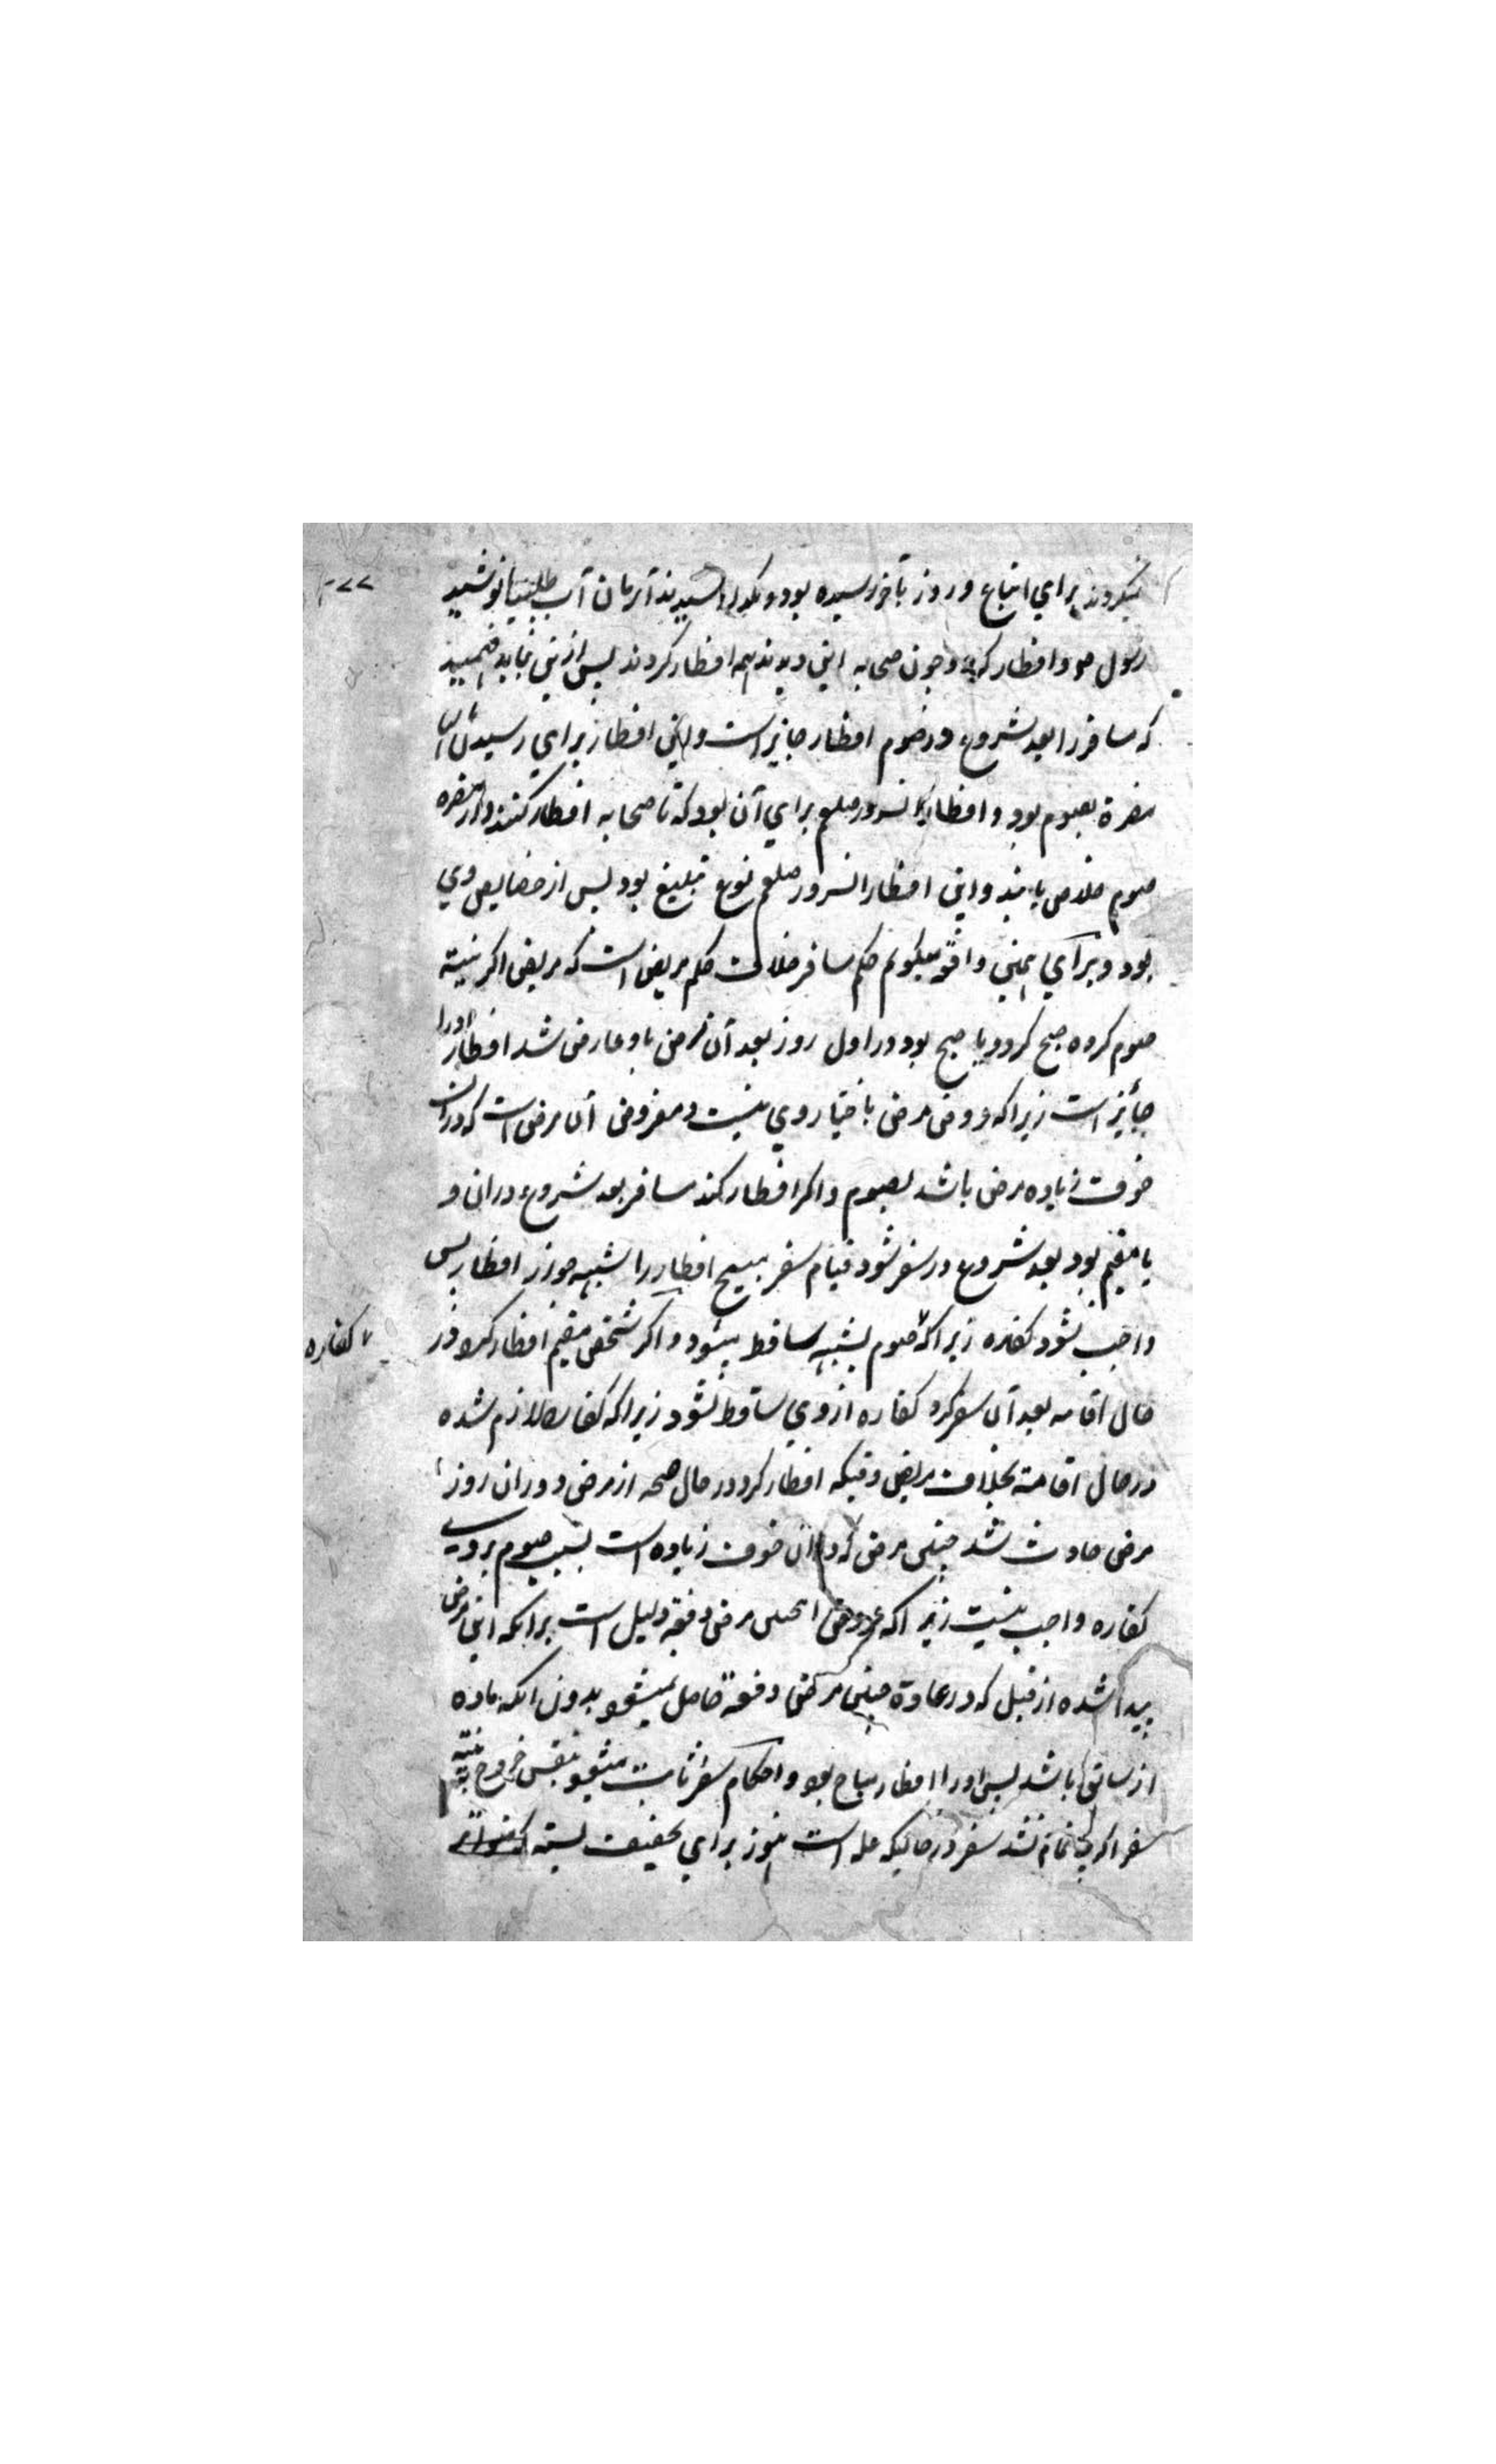 نیکردند برای اتباع و روز بآخر رسیده بود و بکدید رسیدند آنزمان آب طلبیده نوشید
رسول صو وافطار کرد وچون صحابه این دیدند همه افطار کردند پس ازینی نباید فهمید
که مسافر را بعد شروع در صوم افطار جایز است واین افطار برای رسیدن
مضرة بصوم بود و افطار آنسرور صلعم برای آن بود که تا صحابه افطار کنند واز مضره
صوم خلاص یابند واین افطار آنسرور صلعم نوع تبلیغ بود پس از خصایص وی
بود وبرای همین واقع میکویم حکم مسافر خلاف حکم مریض است که مریض اکر نیته
صوم کرده صبح کرد ویا صبح بود در اول روز بعد آن مرض باو عارض شد افطار اورا
جایز است زیراکه عروض مرض باختیار وی نیست ومفروض آن مرض است که در ان
خوف زیاده مرض باشد بصوم واکر افطار کند مسافر بعد شروع دران و
یا مقیم بود بعد شروع در سفر شود قیام سفر مبیح افطار را شبهه جواز افطار پس
واجب نشود کفاره زیراکه صوم بشبهه ساقط میشود واکر شخص مقیم افطار کرد در
۷ کفاره
حال اقامه بعد آن سفر کرد کفاره ازوی ساقط نشود زیراکه کفاره لازم شده
در حال اقامته بخلاف مریض وقتیکه افطار کرد در حال صحه از مرض ودران روز
مرض حادث شد چنین مرض که در ان خوف زیاده است بسبب صوم بر وی
کفاره واجب نیست زیراکه عروض اینچنین مرض دفعة دلیل است برانکه این مرض
پیدا شده از قبل که در عادة چنین مرض دفعة حاصل نمیشود بدون آنکه ماده
از سابق باشد پس اورا افطار مباح بود واحکام سفر ثابت میشود بنفس خروج بنیته
سفر اکرچه تمام نشد سفر در حالیکه علة است هنوز برای تخفیف